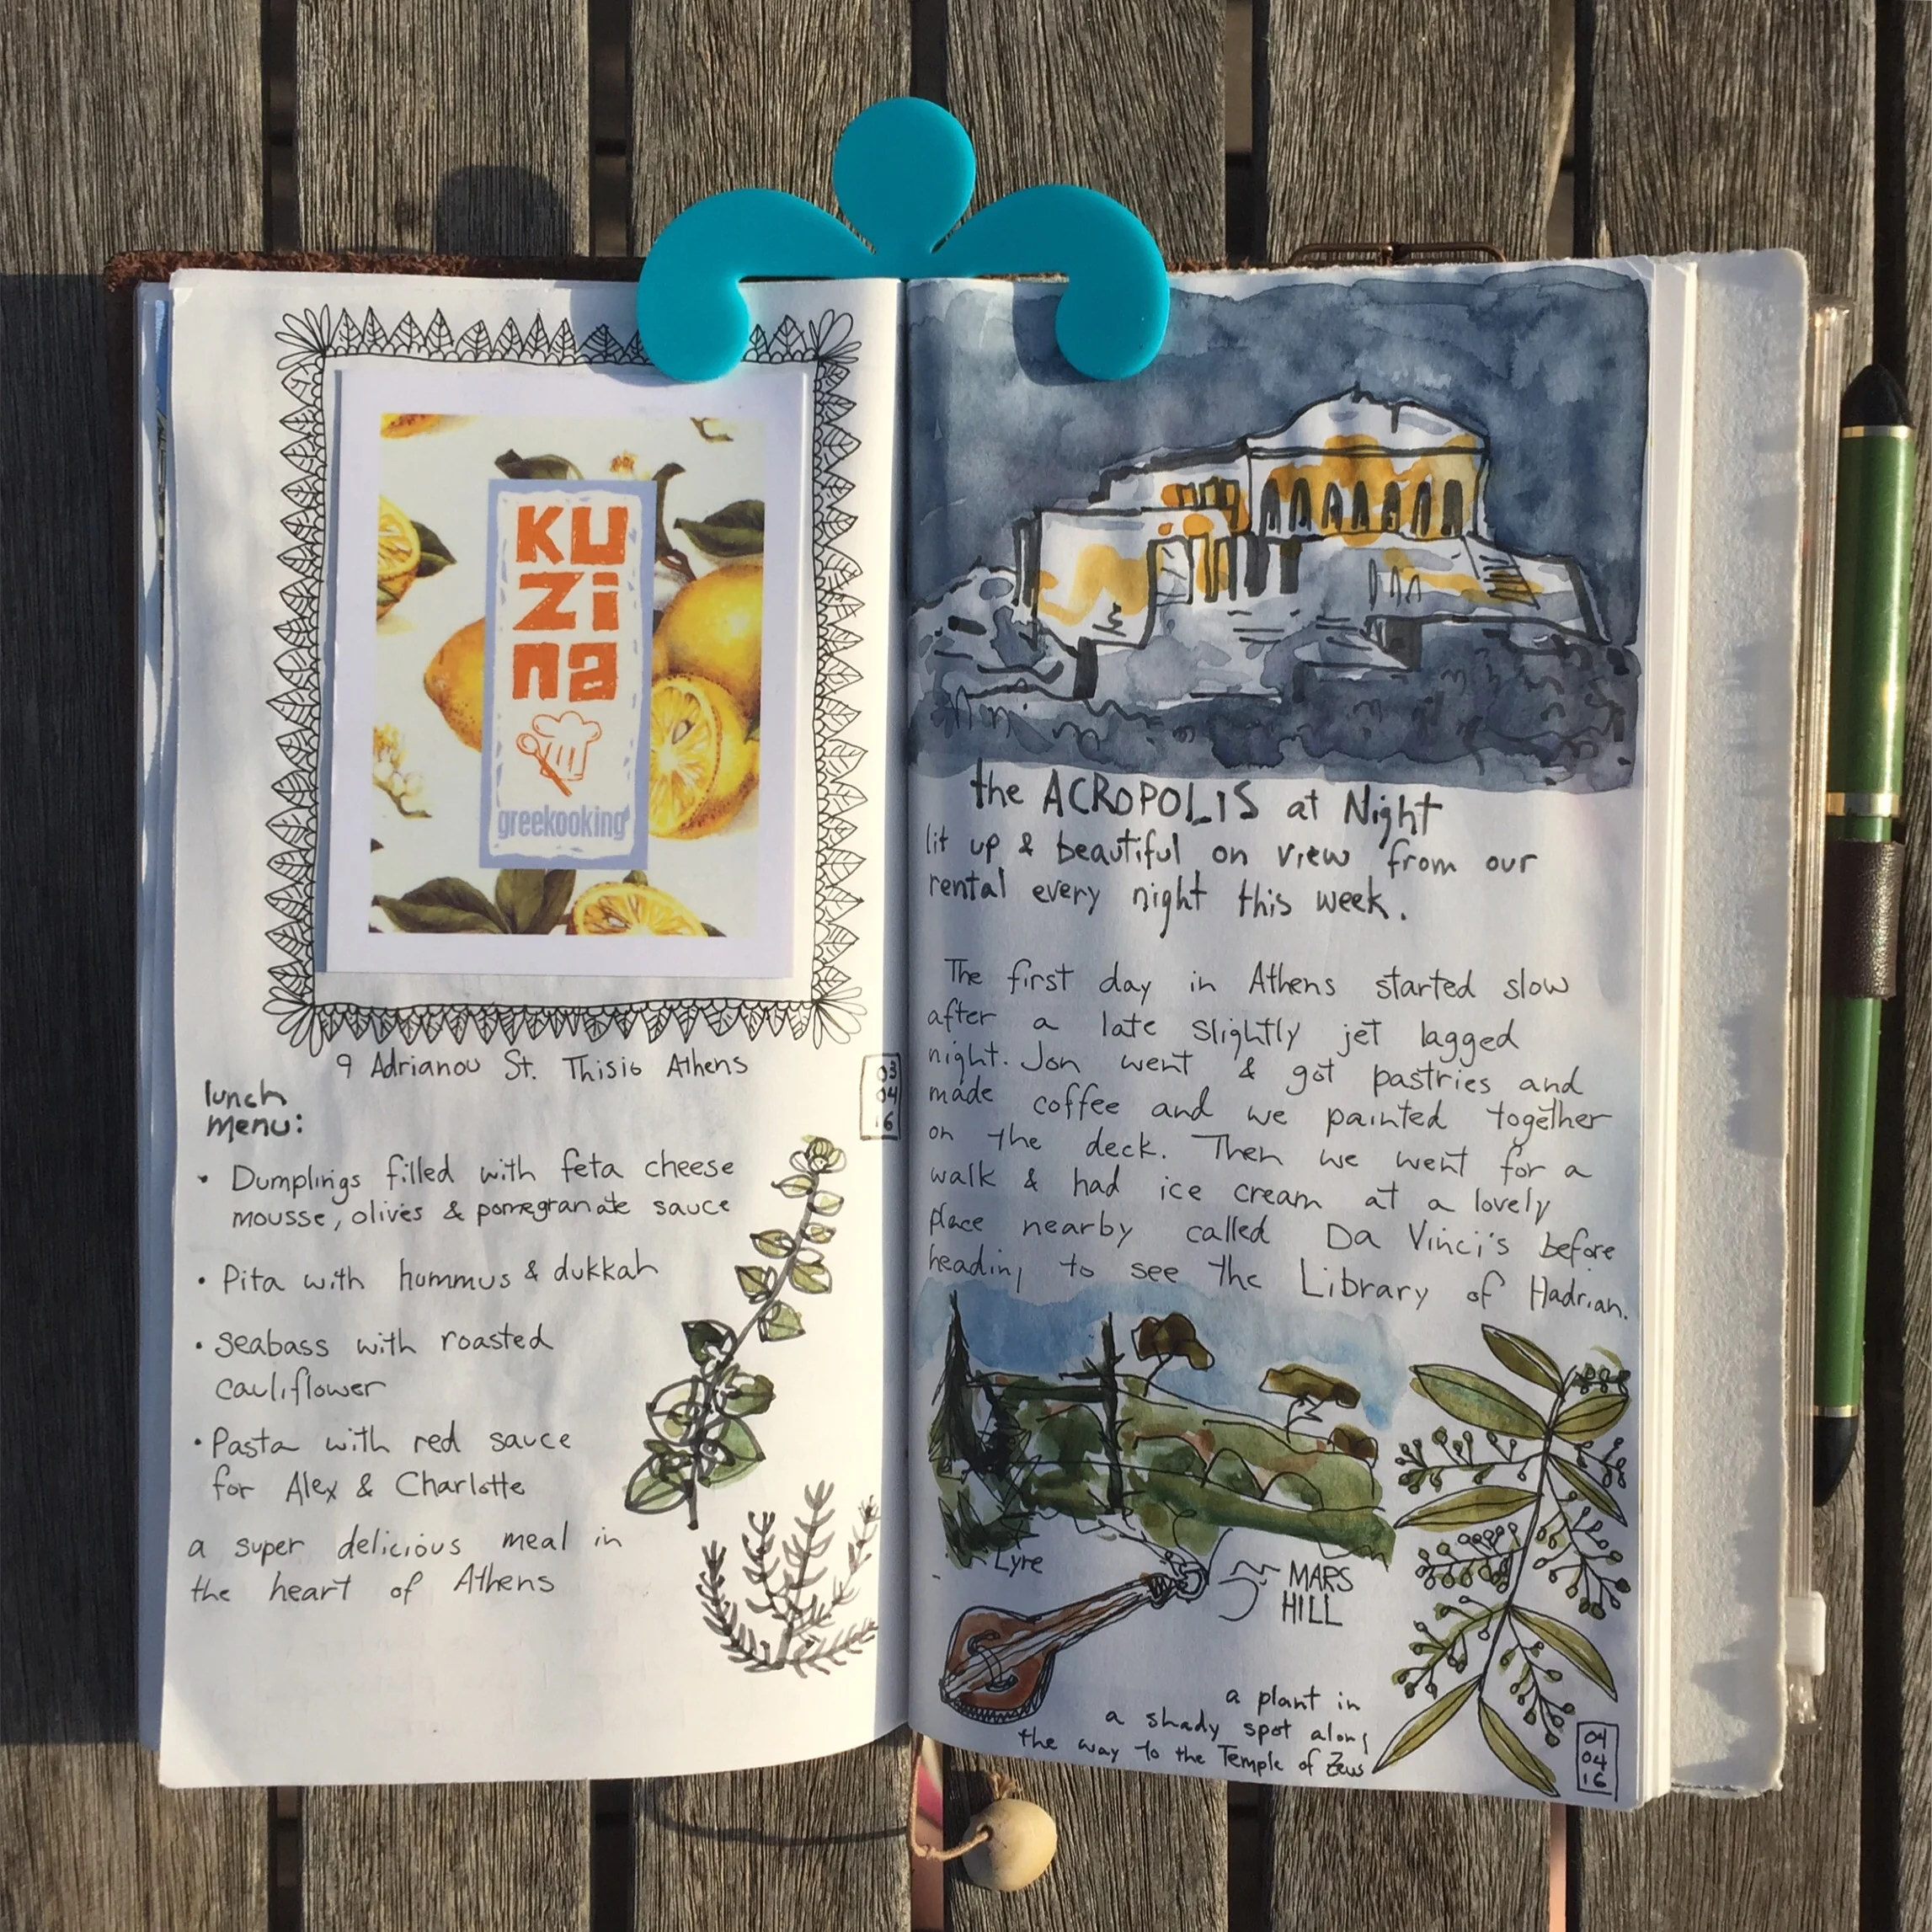 KU
Zi
na
greekooking
9 Adrianou St. Thisio Athens
lunch
menu:
• Dumplings filled with feta cheese
mousse, olives & pomegranate sauce
• Pita with hummus & dukkah
• Seabass with roasted
cauliflower
• Pasta with red sauce
for Alex & Charlotte
a super delicious meal in
the heart of Athens
03
04
16
the ACROPOLIS at Night
lit up & beautiful on view from our
rental every night this week.
The first day in Athens started slow
after a late slightly jet lagged
night. Jon went & got pastries and
made coffee and we painted together
on the deck. Then we went for a
walk & had ice cream at a lovely
place nearby called Da Vinci's before
heading to see the Library of Hadrian.
Lyre
MARS
HILL
a plant in
a shady spot along
the way to the Temple of Zeus
04
04
16